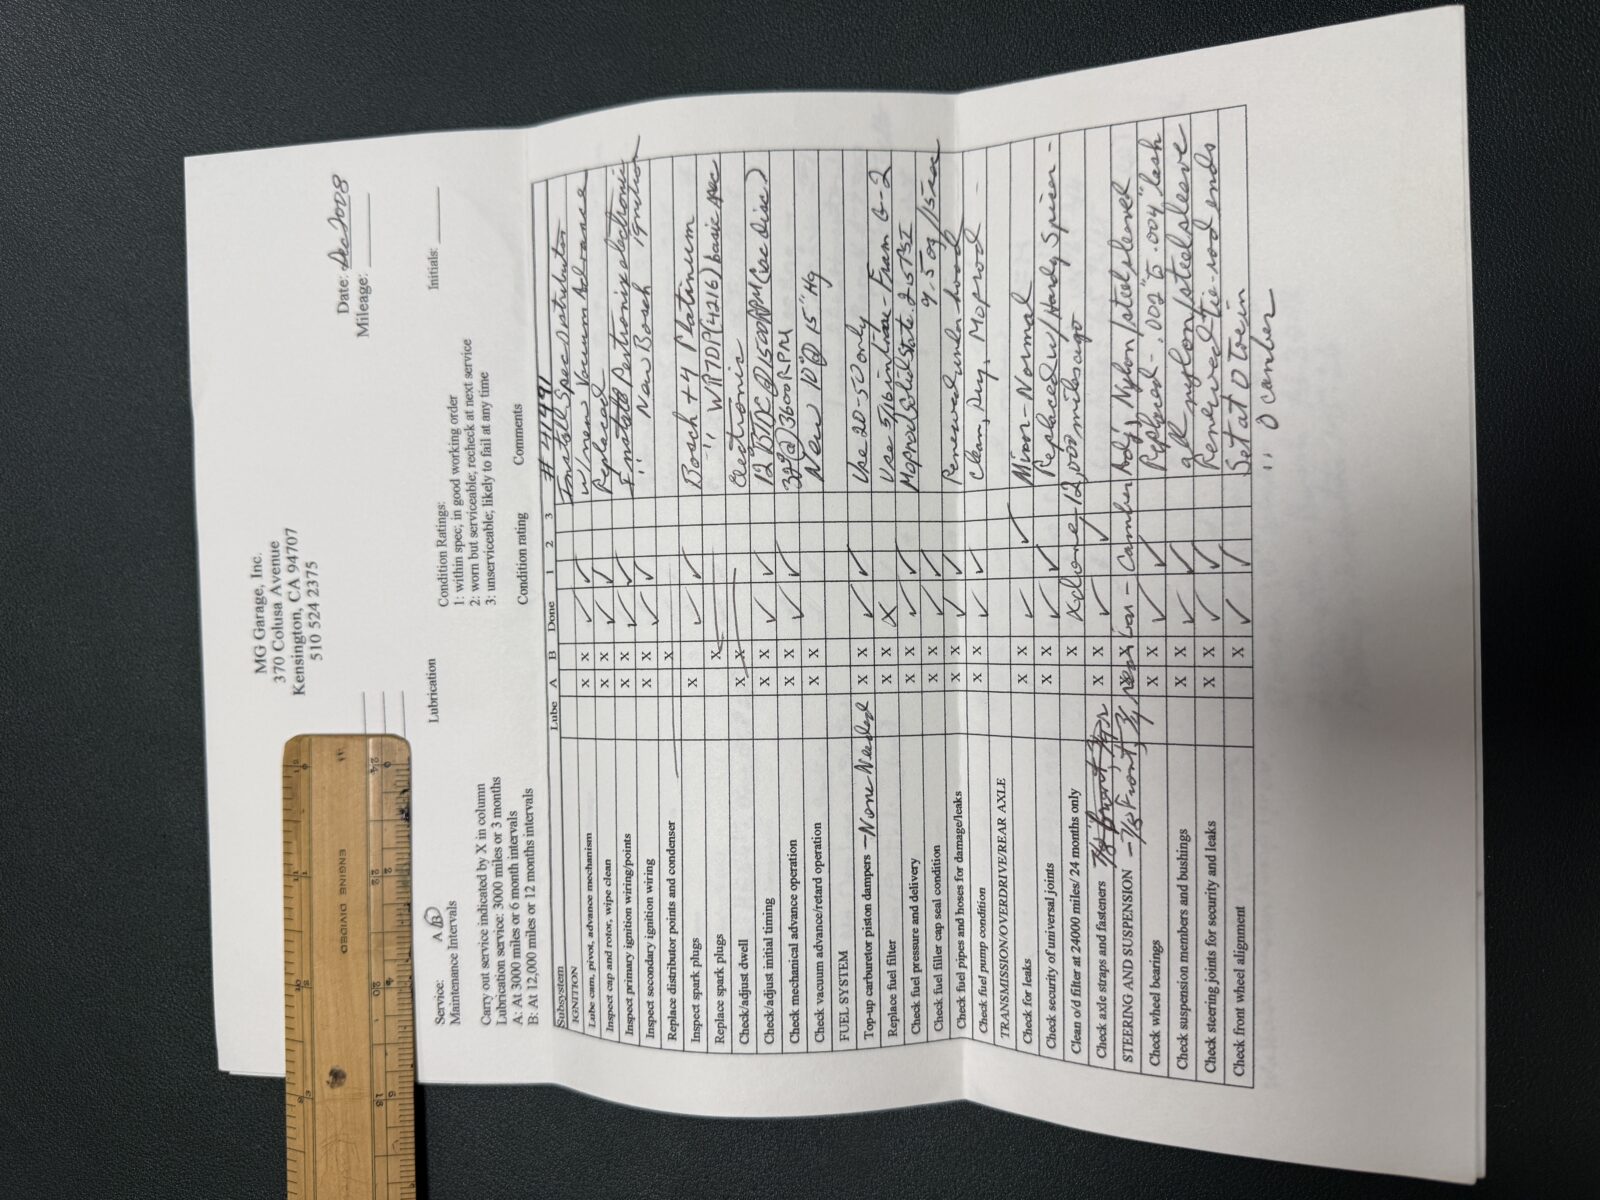 MG Garage, Inc.
370 Colusa Avenue
Kensington, CA 94707
510 524 2375
Date: Dec 2008
Mileage:
Service: A B
Maintenance Intervals
Lubrication
Condition Ratings:
1: within spec; in good working order
2: worn but serviceable; recheck at next service
3: unserviceable; likely to fail at any time
Initials:
Carry out service indicated by X in column
Lubrication service: 3000 miles or 3 months
A: At 3000 miles or 6 month intervals
B: At 12,000 miles or 12 months intervals
Condition rating
Comments
Subsystem Lube A B Done 1 2 3 # 41491
IGNITION Install Spec Distributor
Lube cam, pivot, advance mechanism X X ✓ ✓ w/new Vacuum Advance
Inspect cap and rotor, wipe clean X X ✓ ✓ Replaced
Inspect primary ignition wiring/points X X ✓ ✓ Install Pertronix electronic
Inspect secondary ignition wiring X X ✓ ✓ " New Bosch ignition
Replace distributor points and condenser X
Inspect spark plugs X ✓ ✓ Bosch +4 Platinum
Replace spark plugs X " WR7DP(4216) basic spec
Check/adjust dwell X X Electronic
Check/adjust initial timing X X ✓ ✓ 12° BTDC @ 1500 RPM (vac disc)
Check mechanical advance operation X X ✓ ✓ 32° @ 3600 RPM
Check vacuum advance/retard operation X X New 10° @ 15" Hg
FUEL SYSTEM
Top-up carburetor piston dampers - None Needed X X ✓ ✓ Use 20-50 only
Replace fuel filter X X X Use 5/16 in line - Fram G-2
Check fuel pressure and delivery X X ✓ ✓ Moprod Solid State 2.5 PSI
Check fuel filler cap seal condition X X ✓ ✓ 9.5 oz/15 sec
Check fuel pipes and hoses for damage/leaks X X ✓ ✓ Renewed under hood
Check fuel pump condition X X ✓ ✓ Clean, Dry, Moprod -
TRANSMISSION/OVERDRIVE/REAR AXLE
Check for leaks X X ✓ ✓ Minor-Normal
Check security of universal joints X X ✓ ✓ Replaced w/Hardy Spicer -
Clean o/d filter at 24000 miles/ 24 months only X X done 12,000 miles ago
Check axle straps and fasteners X X ✓ ✓
STEERING AND SUSPENSION - 7/8 Front, 3/4 rear bar - Camber Adj, Nylon/steel sleeved
Check wheel bearings X X ✓ ✓ Replaced - .002" to .004" lash
Check suspension members and bushings X X ✓ ✓ all nylon/steel sleeve
Check steering joints for security and leaks X X ✓ ✓ Renewed tie-rod ends
Check front wheel alignment X ✓ ✓ Set at 0 toe in
" 0 camber
DIVIDED
ENGINE